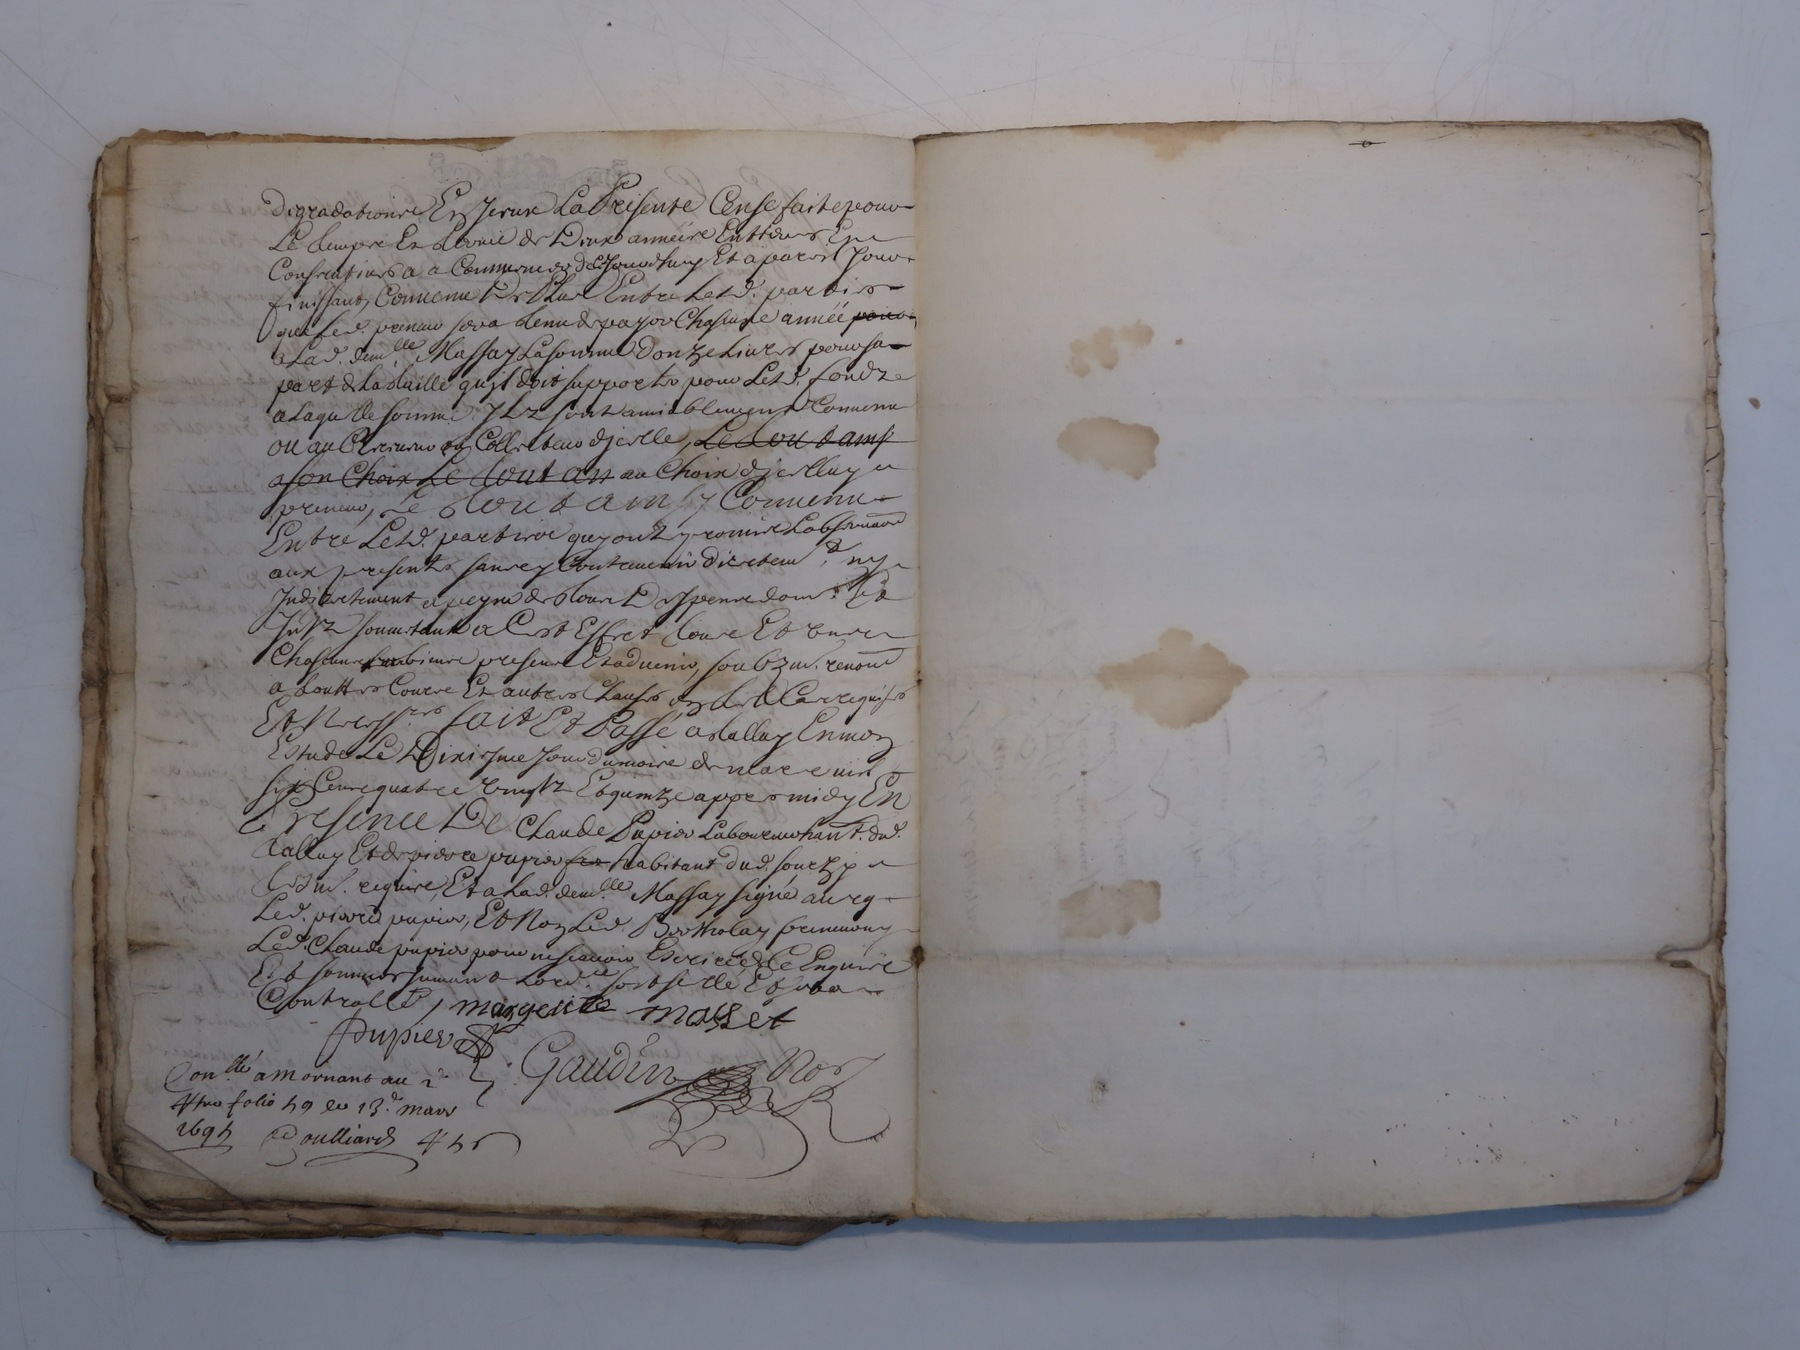 degradations Et sera La Presente Cense faite pour
Le temps Et terme de Deux années Entieres Et
Consecutives a Commencer de ce Jourdhuy Et a pareil Jour
finissant, Convenu De Plus Entre Lesd. parties
que Led. preneur sera tenu de payer Chascune année pour
a Lad. dem.lle Massay La somme donze Livres pour sa
part de La taille quil doit supporter pour Lesd. fondz
a Laquelle somme Ilz sont amiablement Convenu
ou au Recepveur ou Collecteur dicelle, Le tout ainsi
a son Choix Le tout au au Choix dicelluy
preneur, Le tout ainsy Convenu
Entre Lesd. parties quy ont promis Lobserver
aux presentes sans y Contrevenir directem.t ny
Indirectement a peyne de tous Despens dom.
Intz soumetant a Cest Effect tous Et Uns
Chascuns biens presens Et advenir, soubz
a touttes Cours Et autres Clauses requises
Et Necess.res fait Et Passé a talluy En mon
Estude Le Dixiesme Jour du mois de mars mil
six Cens quatre vingtz Et quinze appres midy En
Presence De Claude Pupier Laboureur hant. dud.
talluy Et de pierre pupier habitant dud. sourzy
tesm. requis, Et a Lad. dem.lle Massay signé avec
Led. pierre pupier, Et Non Led. Bertholay preneur ny
Led. Claude pupier pour ne scavoir Escrire de ce Enquis
Et sommés suivant Lord.ce soit scellé Et
Controllé, margerite masset
Pupier
Gaudin Nore
Con.llé a Mornant au 2
Rre folio 59 le 13.e mars
1695 Doulliard